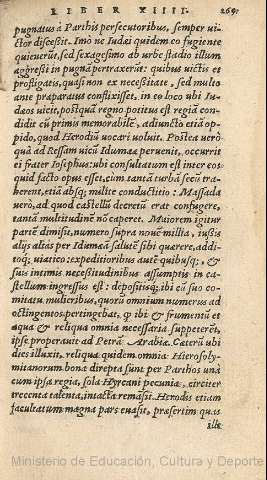 LIBER XIIII. 269.
pugnatus à Parthis persecutoribus, semper ui-
ctor discessit. Imò ne Iudæi quidem eo fugiente
quieuerūt, sed sexagesimo ab urbe stadio illum
aggressi in pugnā pertraxerūt: quibus uictis et
profligatis, quasi non ex necessitate, sed multo
ante præparatus conflixisset, in eo loco ubi Iu-
dæos uicit, postquā regno potitus est regiā con-
didit cū primis memorabilē, adiuncto etiā op-
pido, quod Herodiū uocari uoluit. Postea uerò
quā ad Ressam uicū Idumææ peruenit, occurrit
ei frater Iosephus: ubi consultatum est inter eos
quid facto opus esset, cum tantā turbā secū tra-
herent, etiā absq; milite conductitio: Massada
uerò, ad quod castellū decretū erat confugere,
tantā multitudinē nō caperet. Maiorem igitur
partē dimisit, numero supra nouē millia, iussis
alijs aliàs per Idumæā salutē sibi quærere, addi-
toq; uiatico: expeditioribus autē quibusq; , &
suis intimis necessitudinibus assumptis in ca-
stellum ingressus est: depositisq; ibi cū suo co-
mitatu mulieribus, quorū omnium numerus ad
octingentos pertingebat, q ibi & frumentū et
aqua & reliqua omnia necessaria suppeterēt,
ipse properauit ad Petrā Arabiæ. Cæterū ubi
dies illuxit, reliqua quidem omnia Hierosoly-
mitanorum bona direpta sunt per Parthos unà
cum ipsa regia, sola Hyrcani pecunia, circiter
trecenta talenta, intacta remāsit. Herodis etiam
facultatum magna pars euasit, præsertim quas
ille
Ministerio de Educación, Cultura y Deporte